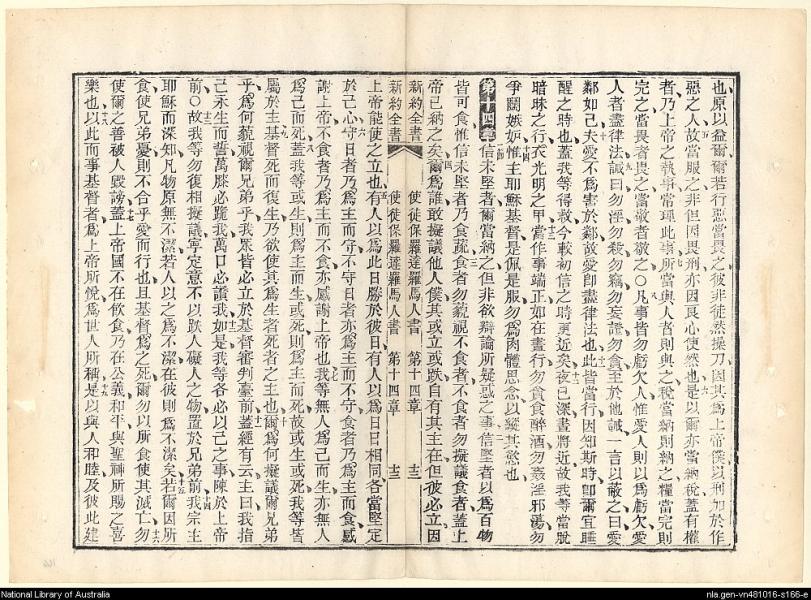 也原以益爾爾若行惡當畏之彼非徒然操刀因其爲上帝僕以刑加於作
惡之人故當服之非但因畏刑亦因良心使然也是以爾亦當納稅蓋有權
者乃上帝之執事常理此事所當與人者則與之稅當納則納之糧當完則
完之當畏者畏之當敬者敬之〇凡事皆勿虧欠人惟愛人則以爲虧欠愛
人者盡律法誡曰勿淫勿殺勿竊勿妄證勿貪至於他誡一言以蔽之曰愛
鄰如己夫愛不爲害於鄰故愛卽盡律法也此皆當行因知斯時卽爾宜睡
醒之時也蓋我等得救今較初信之時更近矣夜已深晝將近故我等當脫
暗昧之行衣光明之甲當作事端正如在晝行勿貪食醉酒勿姦淫邪蕩勿
爭鬬嫉妒惟主耶穌基督是佩是服勿爲肉體思念以縱其慾也
第十四章 信未堅者爾當納之但非欲辯論所疑惑之事信堅者以爲百物
皆可食惟信未堅者乃食蔬食者勿藐視不食者不食者勿擬議食者蓋上
帝已納之矣爾爲誰敢擬議他人僕其或立或跌自有其主在但彼必立因
新約全書 使徒保羅達羅馬人書 第十四章 十三
新約全書 使徒保羅達羅馬人書 第十四章 十三
上帝能使之立也有人以爲此日勝於彼日有人以爲日日相同各當堅定
於己心守日者乃爲主而守不守日者亦爲主而不守食者乃爲主而食感
謝上帝不食者乃爲主而不食亦感謝上帝也我等無人爲己而生亦無人
爲己而死蓋我等或生則爲主而生或死則爲主而死故或生或死我等皆
屬於主基督死而復生乃欲使其爲生者死者之主也爾爲何擬議爾兄弟
乎爲何藐視爾兄弟乎我眾皆必立於基督審判臺前蓋經有云主曰我指
己永生而誓萬膝必跪我萬口必讚我如是我等各必以己之事陳於上帝
前〇故我等勿復相擬議寧定意不以跌人礙人之物置於兄弟前我宗主
耶穌而深知凡物原無不潔若人以之爲不潔在彼則爲不潔矣若爾因所
食使兄弟憂則不合乎愛而行也且基督爲之死爾勿以所食使其滅亡勿
使爾之善被人毀謗蓋上帝國不在飲食乃在公義和平與聖神所賜之喜
樂也以此而事基督者爲上帝所悅爲世人所稱是以與人和睦及彼此建
National Library of Australia
nla.gen-vn481016-s166-e